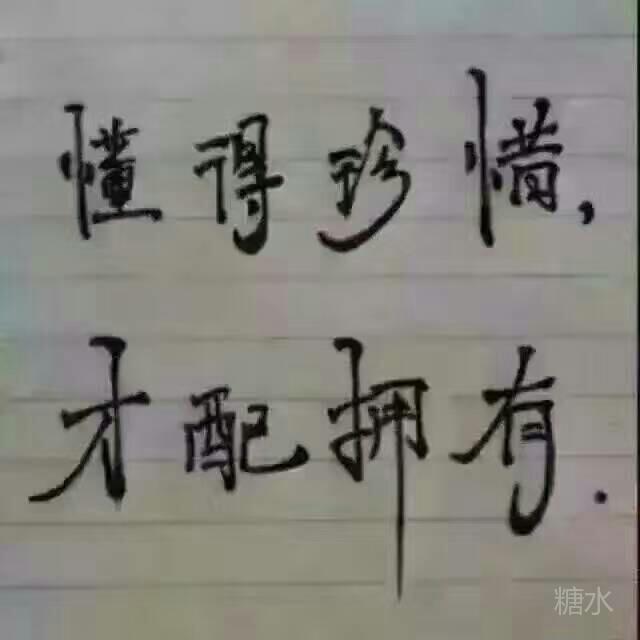 懂得珍惜,
才配拥有.
糖水